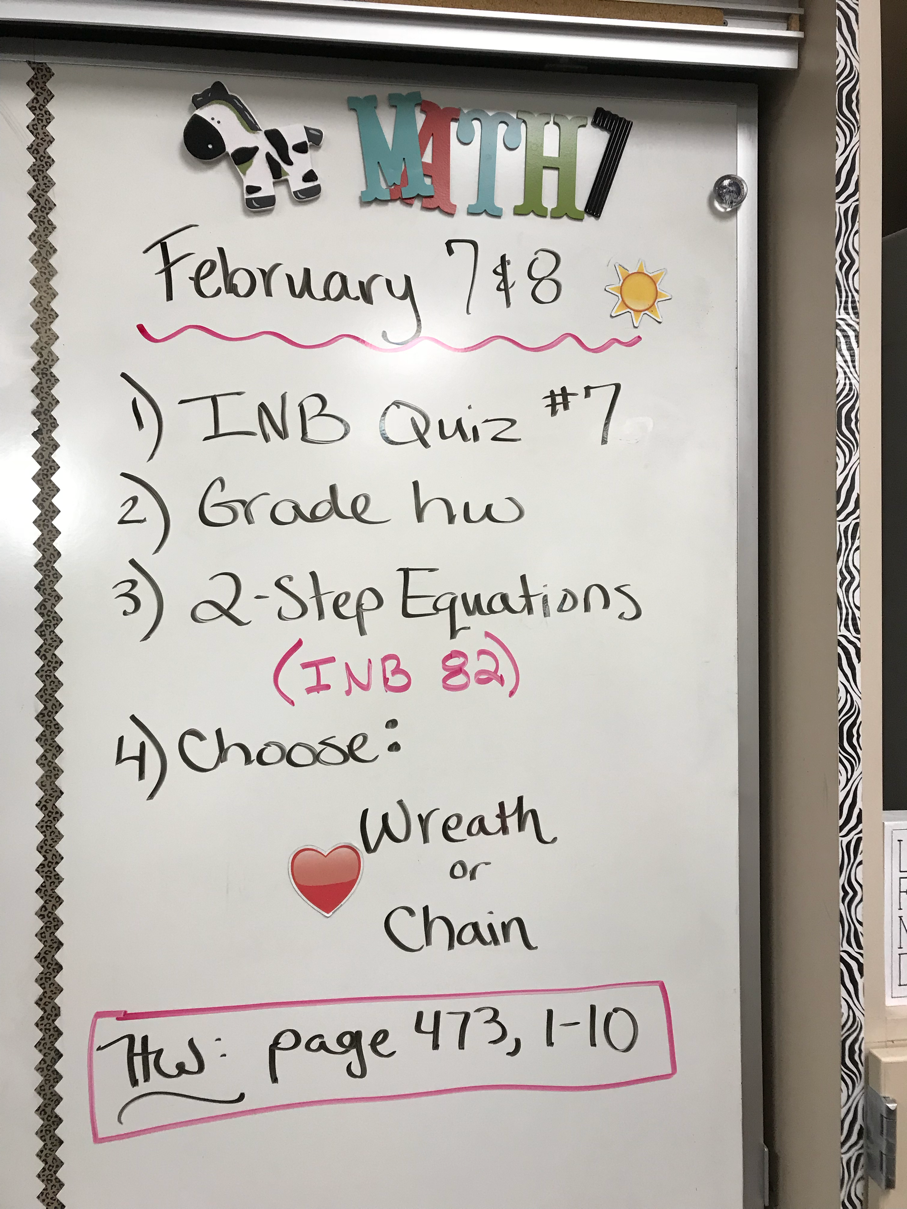 MATH7
February 7 & 8
1) INB Quiz #7
2) Grade hw
3) 2-Step Equations
(INB 82)
4) Choose:
Wreath
or
Chain
HW: page 473, 1-10